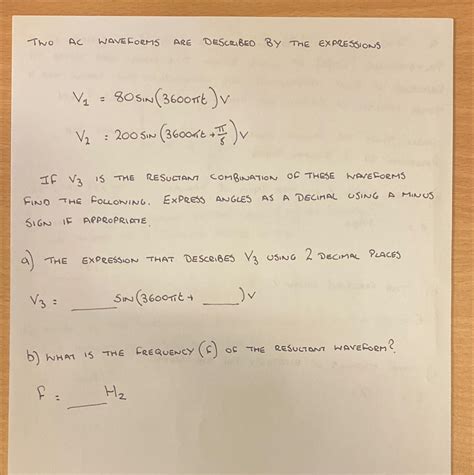 TWO AC WAVEFORMS ARE DESCRIBED BY THE EXPRESSIONS
V₁ = 80 SIN(3600πt)V
V₂ = 200 SIN(3600πt + π/5)V
IF V₃ IS THE RESULTANT COMBINATION OF THESE WAVEFORMS
FIND THE FOLLOWING. EXPRESS ANGLES AS A DECIMAL USING A MINUS
SIGN IF APPROPRIATE.
a) THE EXPRESSION THAT DESCRIBES V₃ USING 2 DECIMAL PLACES
V₃ = ____ SIN(3600πt + ____)V
b) WHAT IS THE FREQUENCY (F) OF THE RESULTANT WAVEFORM?
F = ____ Hz